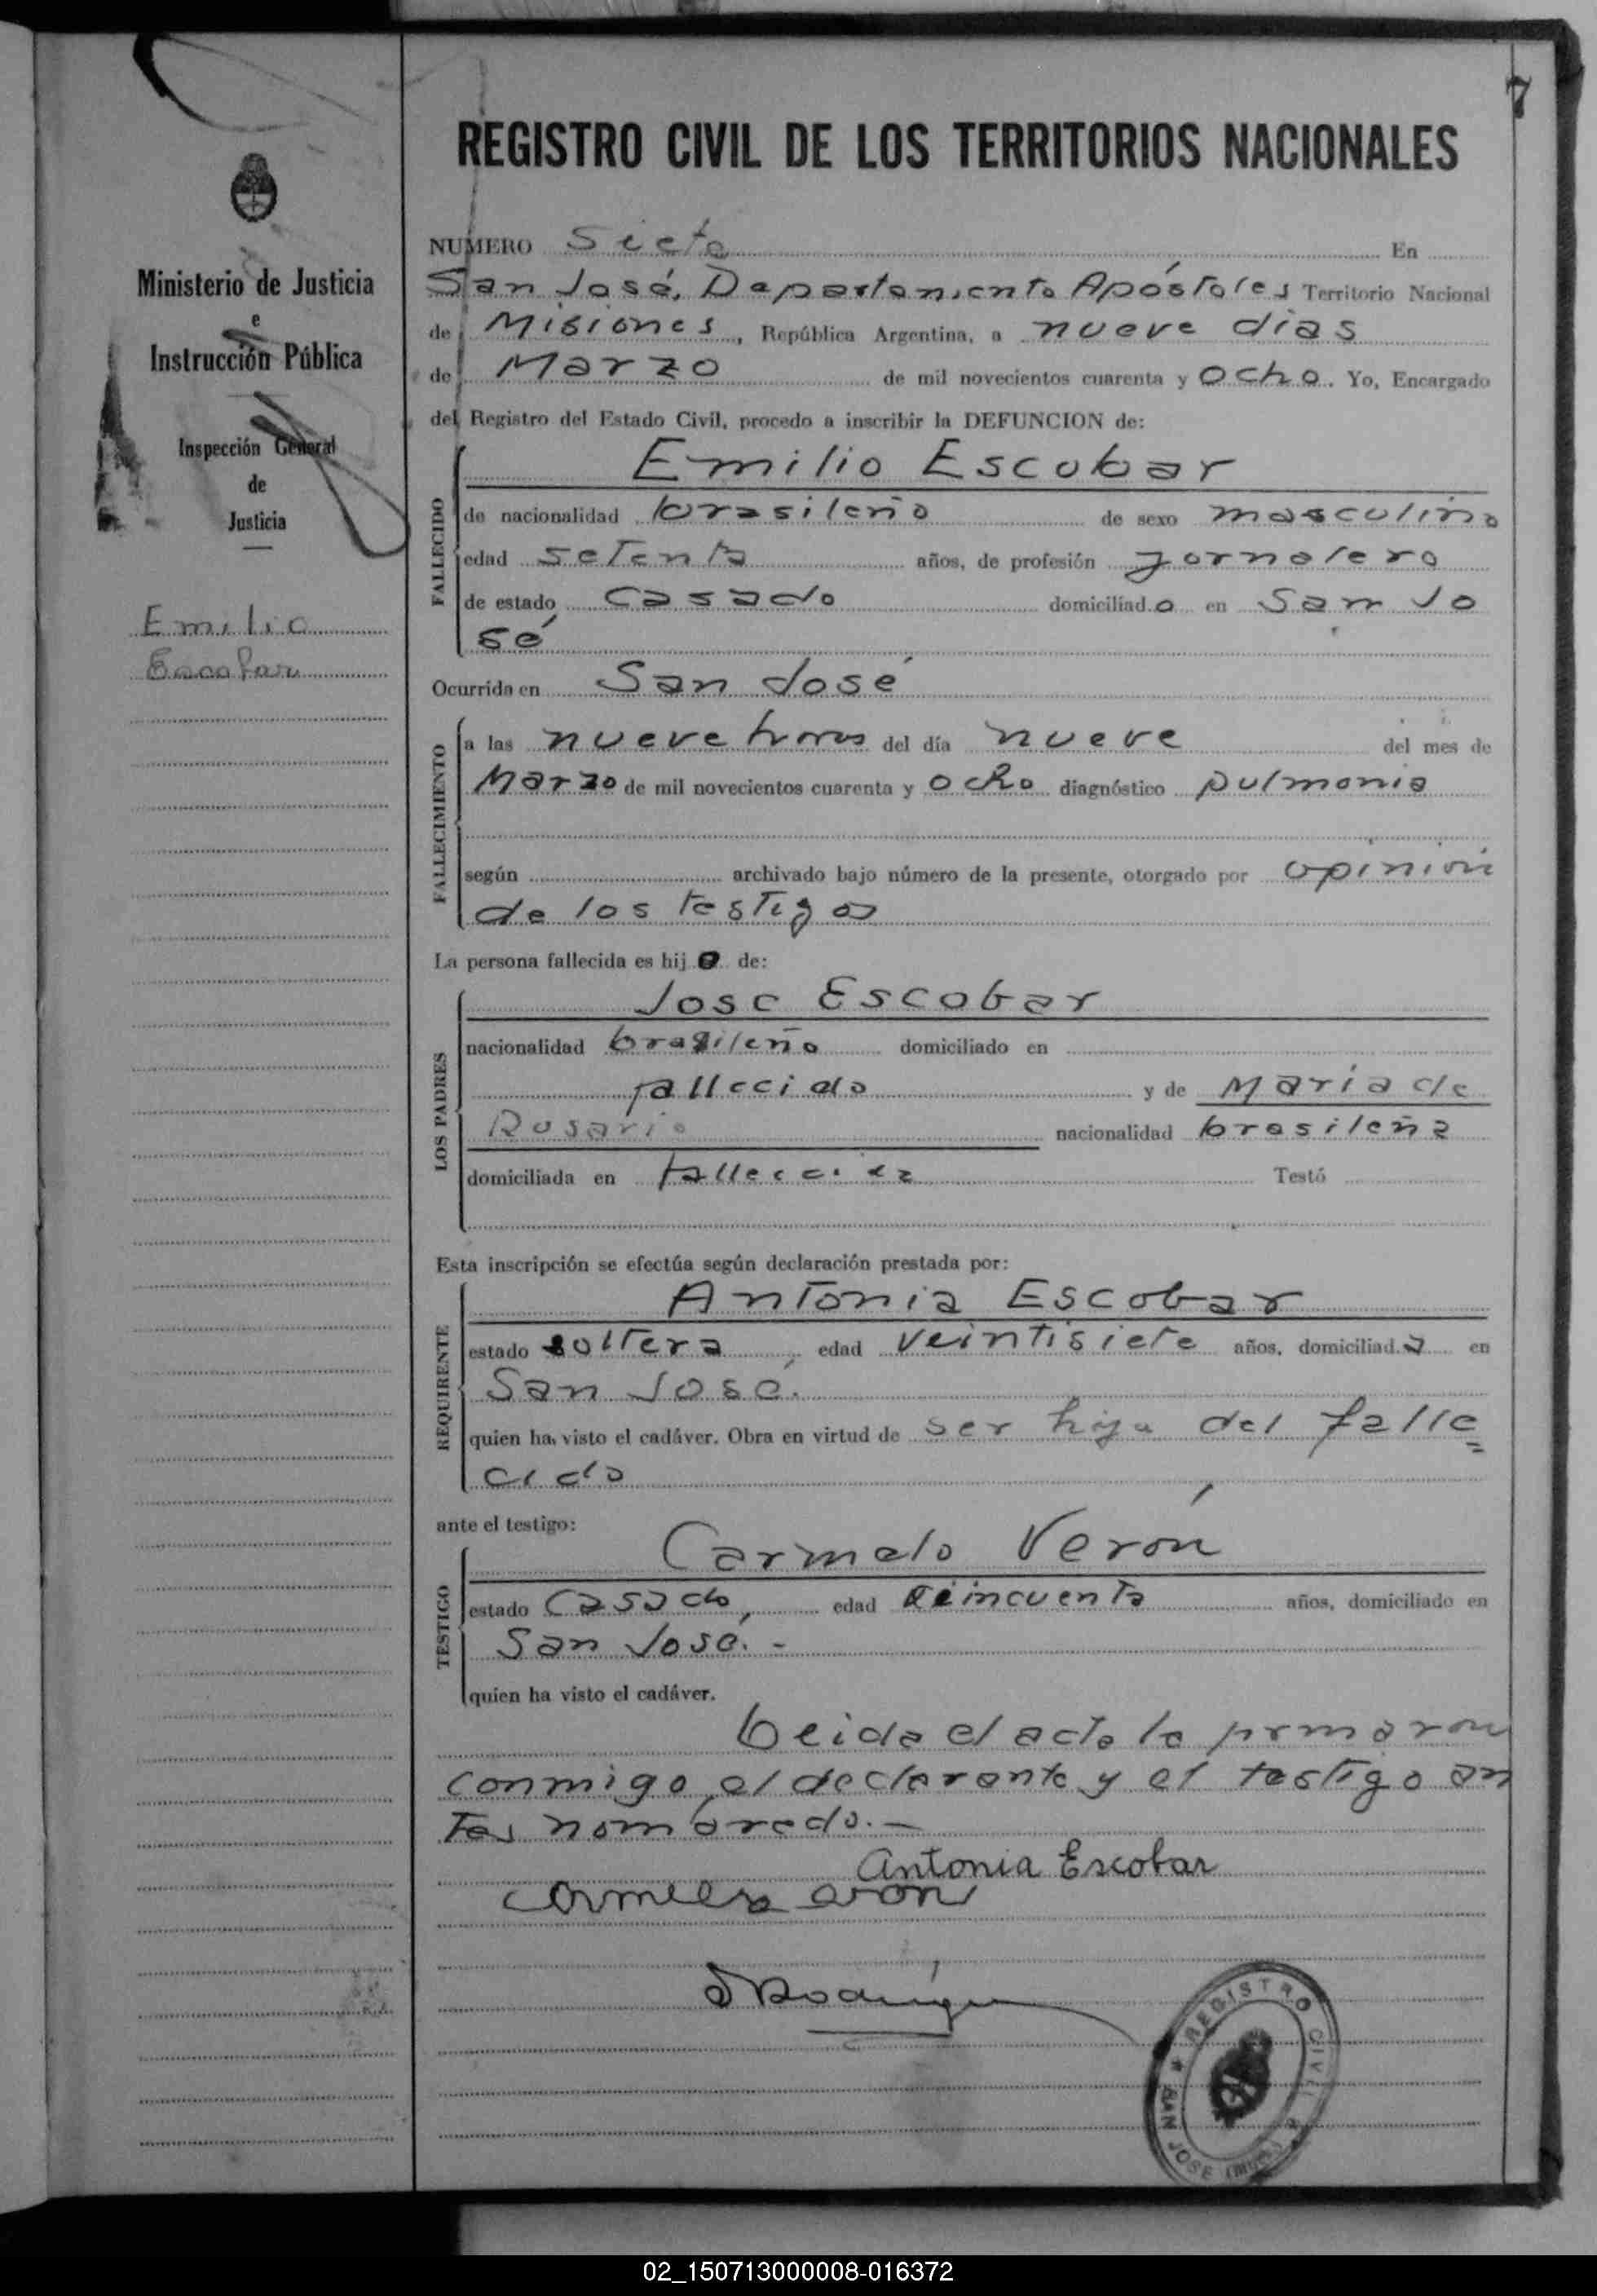 7
REGISTRO CIVIL DE LOS TERRITORIOS NACIONALES
Ministerio de Justicia
e
Instrucción Pública
Inspección General
de
Justicia
Emilio
Escobar
NUMERO Siete En
San José, Departamento Apóstoles Territorio Nacional
de Misiones, República Argentina, a nueve dias
de Marzo de mil novecientos cuarenta y ocho. Yo, Encargado
del Registro del Estado Civil, procedo a inscribir la DEFUNCION de:
FALLECIDO
Emilio Escobar
de nacionalidad brasileño de sexo masculino
edad setenta años, de profesión jornalero
de estado Casado domiciliado en San Jo
sé
Ocurrida en San José
FALLECIMIENTO
a las nueve horas del día nueve del mes de
Marzo de mil novecientos cuarenta y ocho diagnóstico pulmonia
según archivado bajo número de la presente, otorgado por opinión
de los testigos
La persona fallecida es hijo de:
LOS PADRES
Jose Escobar
nacionalidad brasileño domiciliado en
fallecido y de Maria de
Rosario nacionalidad brasileña
domiciliada en fallecida Testó
Esta inscripción se efectúa según declaración prestada por:
REQUIRENTE
Antonia Escobar
estado soltera edad veintisiete años, domiciliada en
San José.
quien ha visto el cadáver. Obra en virtud de ser hija del falle=
cido
ante el testigo:
TESTIGO
Carmelo Verón
estado Casado, edad cincuenta años, domiciliado en
San José. -
quien ha visto el cadáver.
Leida el acta la firmaron
conmigo, el declarante y el testigo an
tes nombrado. —
Antonia Escobar
REGISTRO CIVIL
SAN JOSE (Mnes.)
02_150713000008-016372